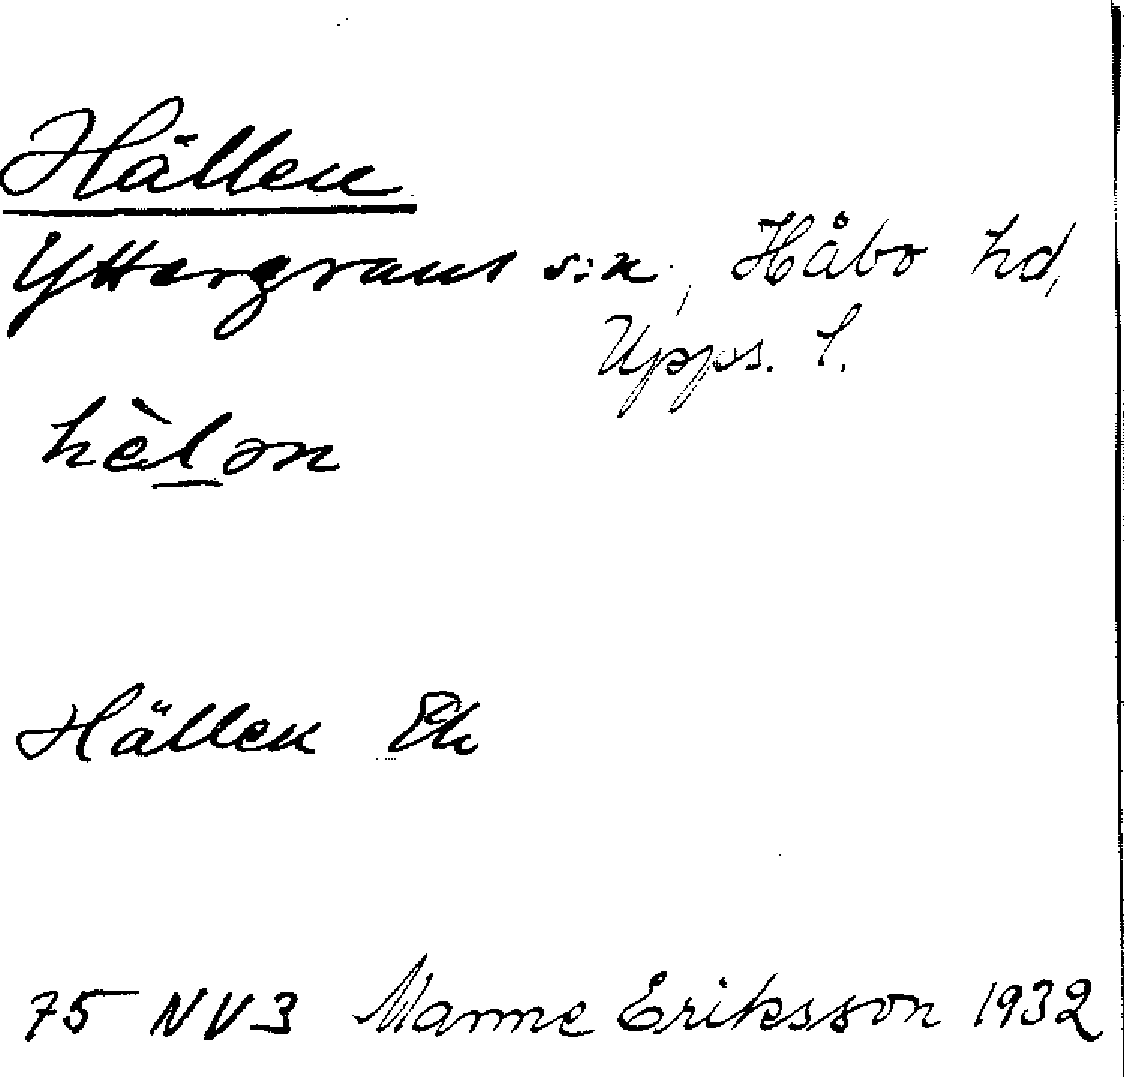 Hällen
Yttergrans s:n, Håbo hd,
Upps. l.
hèl̲ən
Hällen Ek
75 NV3 Manne Eriksson 1932